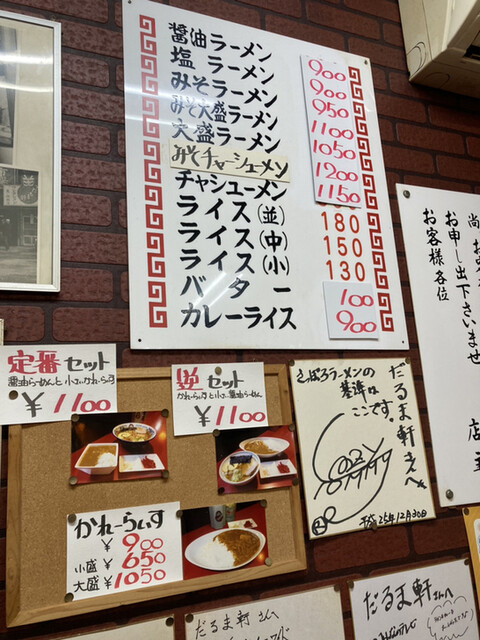 醤油ラーメン 900
塩 ラーメン 900
みそラーメン 950
みそ大盛ラーメン 1100
大盛ラーメン 1050
みそチャーシューメン 1200
チャシューメン 1150
ライス(並) 180
ライス(中) 150
ライス(小) 130
バター 100
カレーライス 900
定番セット
醤油らーめんと小さいかれーらいす
¥1100
逆セット
かれーらいすと小さい醤油らーめん
¥1100
かれーらいす
¥900
小盛 ¥650
大盛 ¥1050
だるま軒さんへ
さっぽろラーメンの
基準は
ここです。
平成25年12月30日
お申し出下さいませ
お客様各位
店主
だるま軒さんへ
だるま軒さんへ